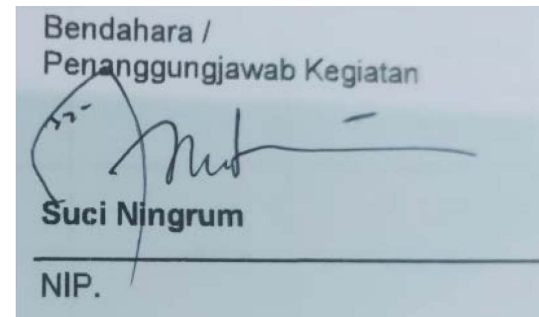 Bendahara /
Penanggungjawab Kegiatan
Suci Ningrum
NIP.